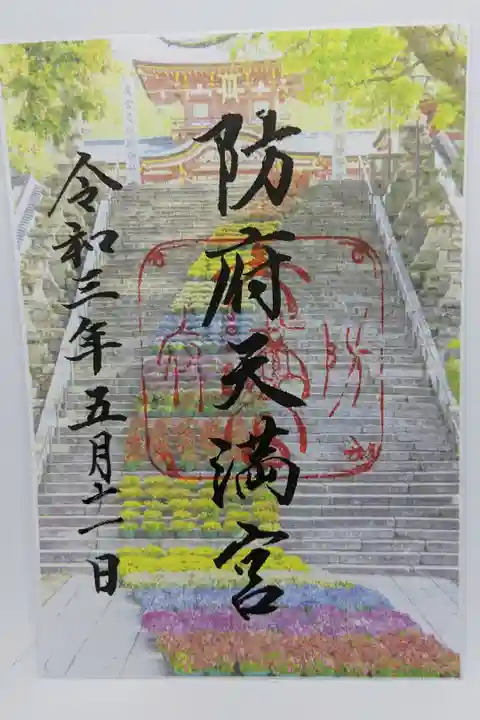 防府天満宮
令和三年五月十一日